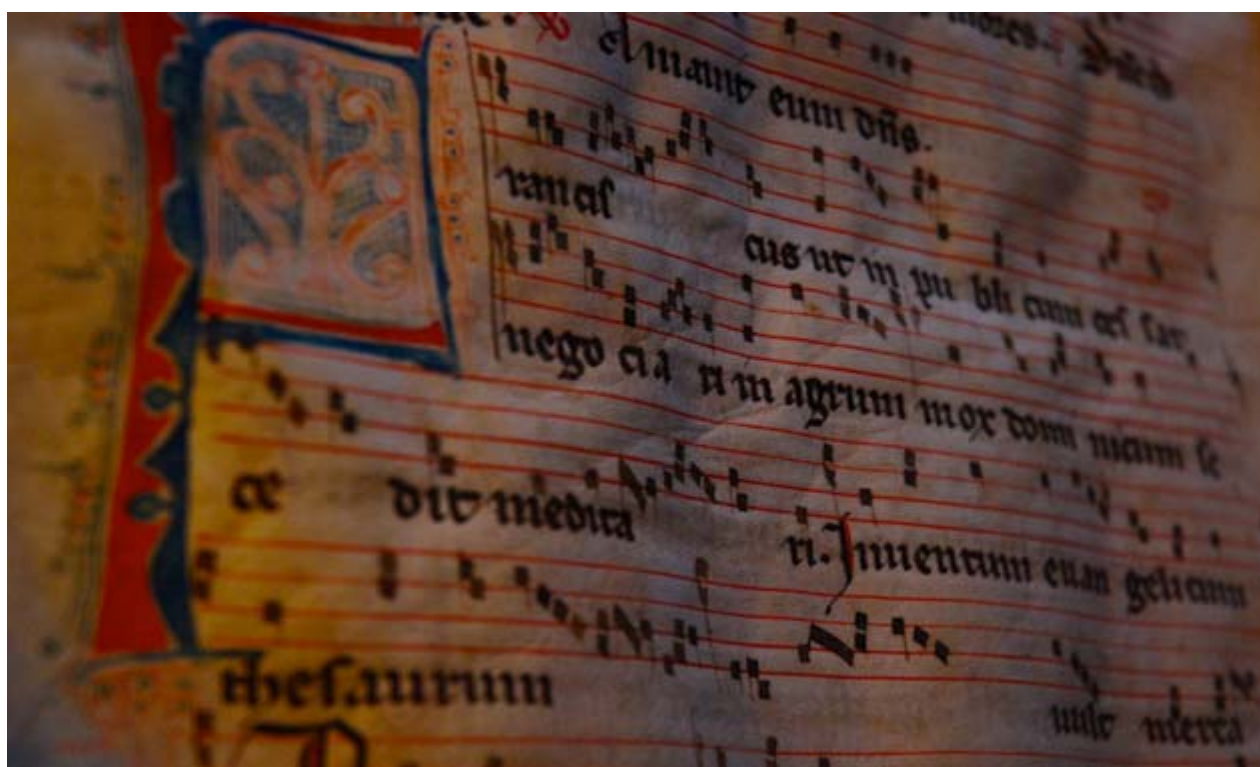 Amavit eum dñs.
Francis cus ut in pu bli cum ces sat,
nego cia ri in agrum mox domi nicum se
ce dit medita ri. Inuentum euan gelicum
thesaurum uult merca